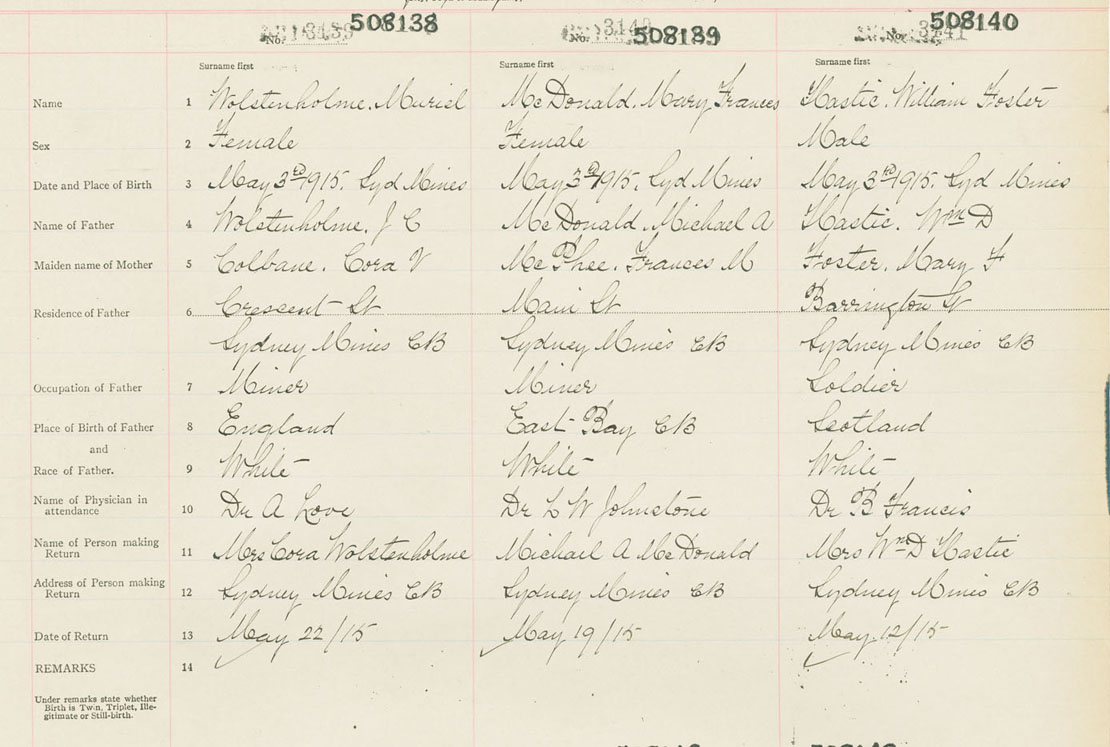 508138 508139 508140
No. No. No.
Surname first Surname first Surname first
Name 1 Wolstenholme. Muriel McDonald. Mary Frances Hastie. William Foster
Sex 2 Female Female Male
Date and Place of Birth 3 May 3rd 1915. Syd Mines May 3rd 1915. Syd Mines May 3rd 1915. Syd Mines
Name of Father 4 Wolstenholme. J C McDonald. Michael A Hastie. Wm D
Maiden name of Mother 5 Colbane. Cora V McPhee. Frances M Foster. Mary F
Residence of Father 6 Crescent St Main St Barrington St
Sydney Mines CB Sydney Mines CB Sydney Mines CB
Occupation of Father 7 Miner Miner Soldier
Place of Birth of Father 8 England East Bay CB Scotland
and
Race of Father. 9 White White White
Name of Physician in
attendance 10 Dr A Love Dr L W Johnstone Dr B Francis
Name of Person making
Return 11 Mrs Cora Wolstenholme Michael A McDonald Mrs Wm D Hastie
Address of Person making
Return 12 Sydney Mines CB Sydney Mines CB Sydney Mines CB
Date of Return 13 May 22/15 May 19/15 May 12/15
REMARKS 14
Under remarks state whether
Birth is Twin, Triplet, Ille-
gitimate or Still-birth.